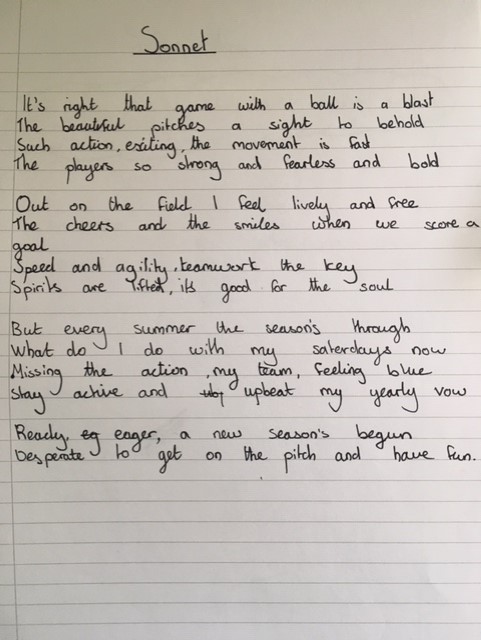 Sonnet
It's right that game with a ball is a blast
The beautiful pitches a sight to behold
Such action, exiting, the movement is fast
The players so strong and fearless and bold
Out on the field I feel lively and free
The cheers and the smiles when we score a
goal
Speed and agility, teamwork the key
Spirits are lifted, it's good for the soul
But every summer the season's through
What do I do with my saterdays now
Missing the action, my team, feeling blue
Stay active and upbeat my yearly vow
Ready, eg eager, a new season's begun
Desperate to get on the pitch and have fun.